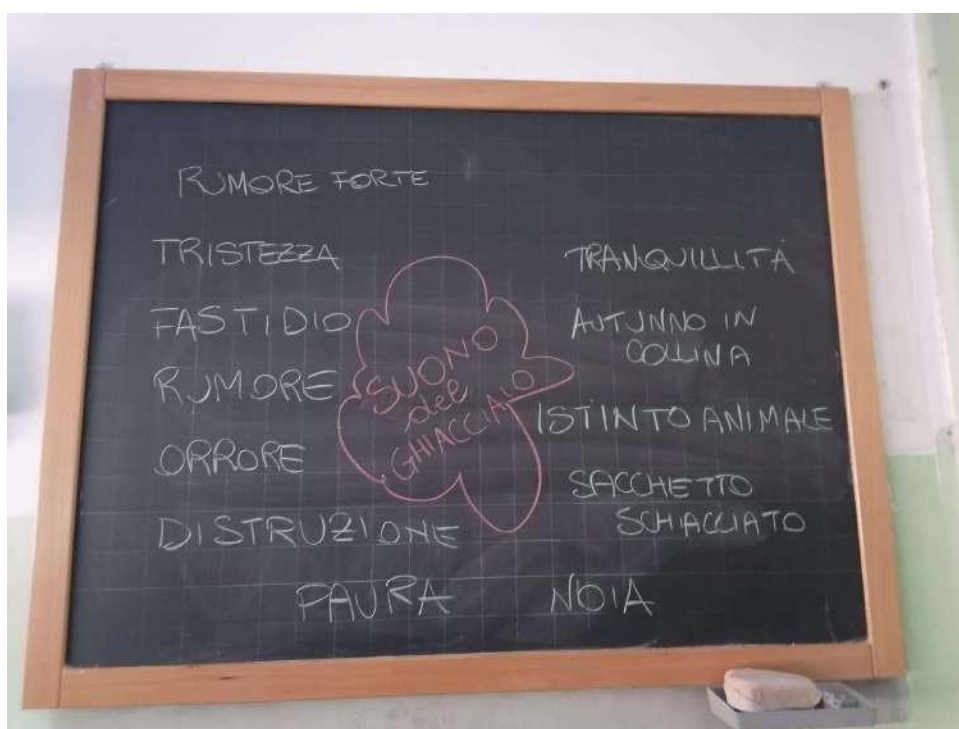 RUMORE FORTE
TRISTEZZA
FASTIDIO
RUMORE
ORRORE
DISTRUZIONE
PAURA
SUONO
del
GHIACCIAIO
TRANQUILLITÀ
AUTUNNO IN
COLLINA
ISTINTO ANIMALE
SACCHETTO
SCHIACCIATO
NOIA